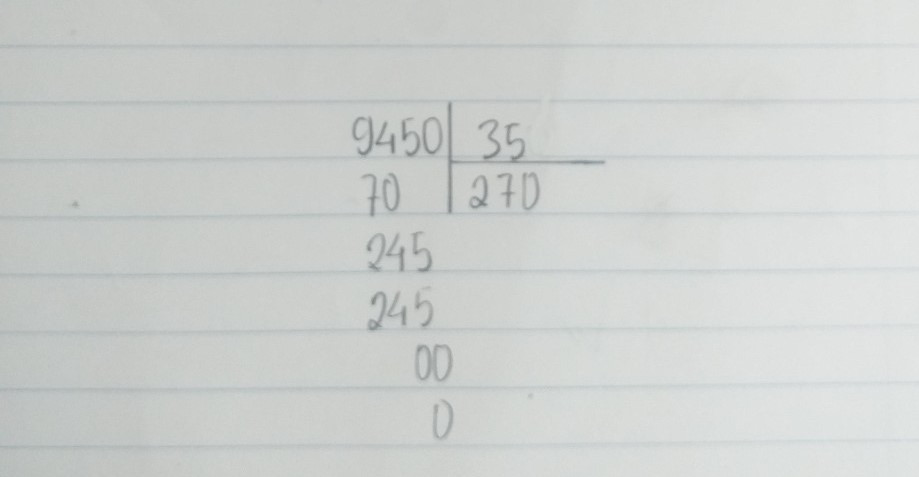 9450 35
70 270
245
245
00
0